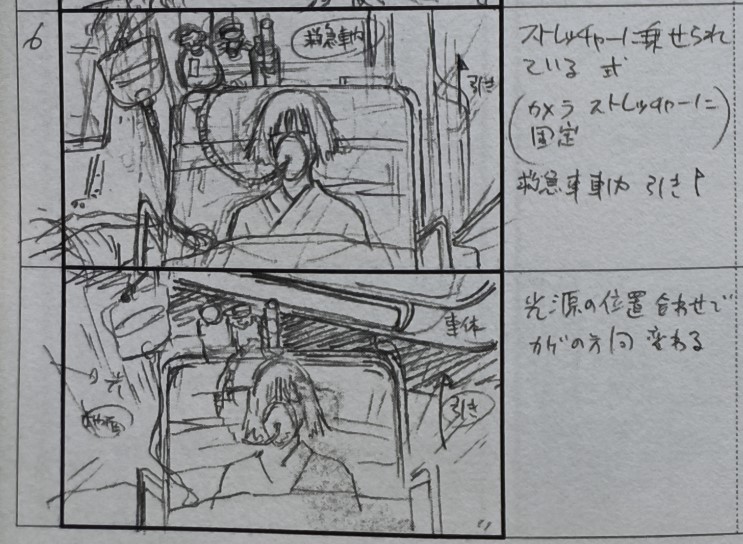 6
救急車内
引き
ストレッチャーに乗せられ
ている 式
(カメラ ストレッチャーに
固定)
救急車車内 引き↑
車体
日光
引き
光源の位置合わせで
カゲの方向 変わる